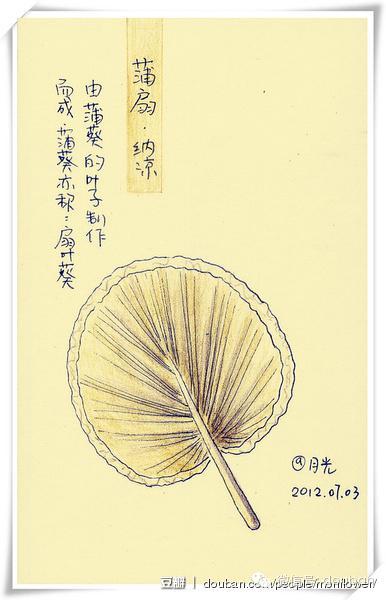 蒲扇·纳凉
由蒲葵的叶子制作
而成.蒲葵亦称:扇叶葵
@月光
2012.07.03
豆瓣 | douban.com/people/monflower/
微信号: